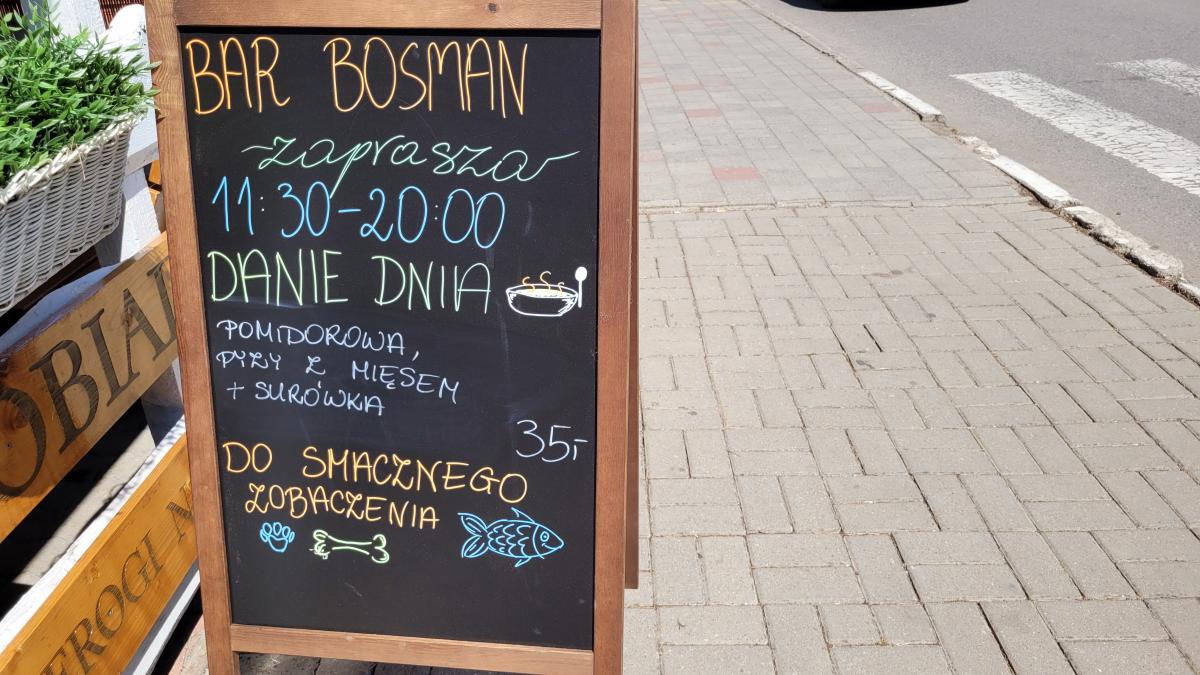 BAR BOSMAN
~zaprasza~
11:30-20:00
DANIE DNIA
POMIDOROWA,
PYZY Z MIĘSEM
+ SURÓWKA
35,-
DO SMACZNEGO
ZOBACZENIA
OBIA